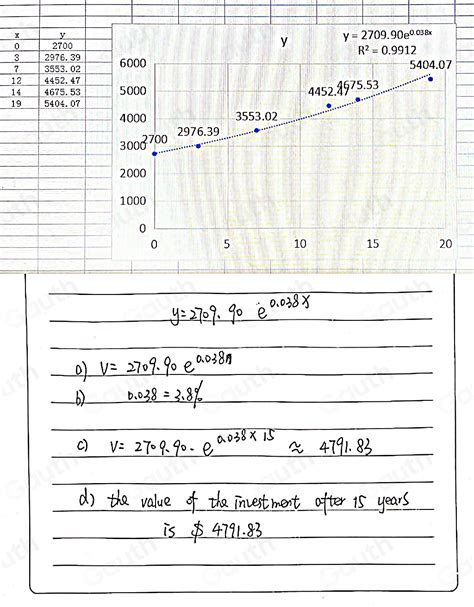 x y
0 2700
3 2976.39
7 3553.02
12 4452.47
14 4675.53
19 5404.07
y
y = 2709.90e^0.038x
R² = 0.9912
6000
5000
4000
3000
2000
1000
0
2700
2976.39
3553.02
4452.47
4675.53
5404.07
0 5 10 15 20
y = 2709.90 e^0.038x
a) V = 2709.90 e^0.038n
b) 0.038 = 3.8%
c) V = 2709.90 · e^0.038×15 ≈ 4791.83
d) the value of the investment after 15 years
is $ 4791.83
Gauth